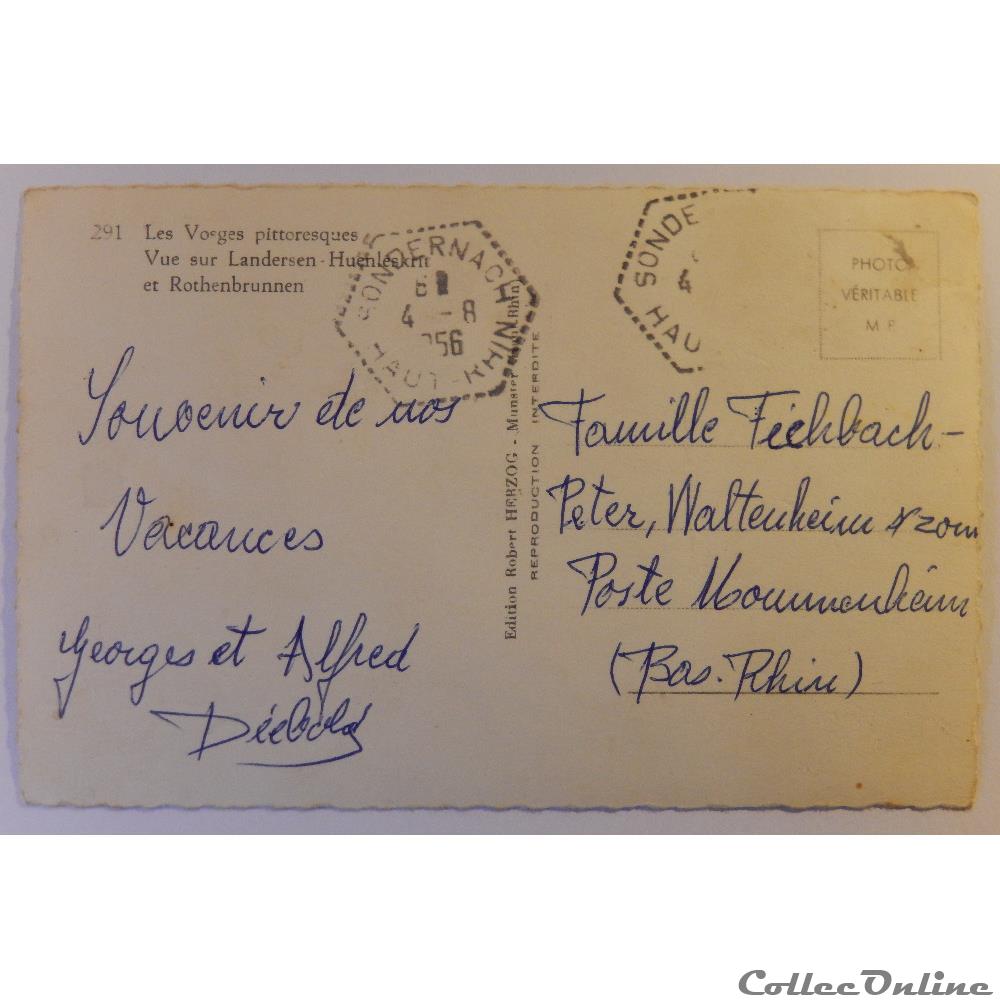 291 Les Vosges pittoresques
Vue sur Landersen-Huenleskrit
et Rothenbrunnen
SONDERNACH
4 -8
956
HAUT-RHIN
SONDE
4
HAU
PHOTO
VÉRITABLE
M P
Souvenir de nos
Vacances
Georges et Alfred
Diebold
Edition Robert HERZOG - Munster (Haut-Rhin)
REPRODUCTION INTERDITE
Famille Fiehbach-
Peter, Waltenheim s/zorn
Poste Mommenheim
(Bas-Rhin)
CollecOnline